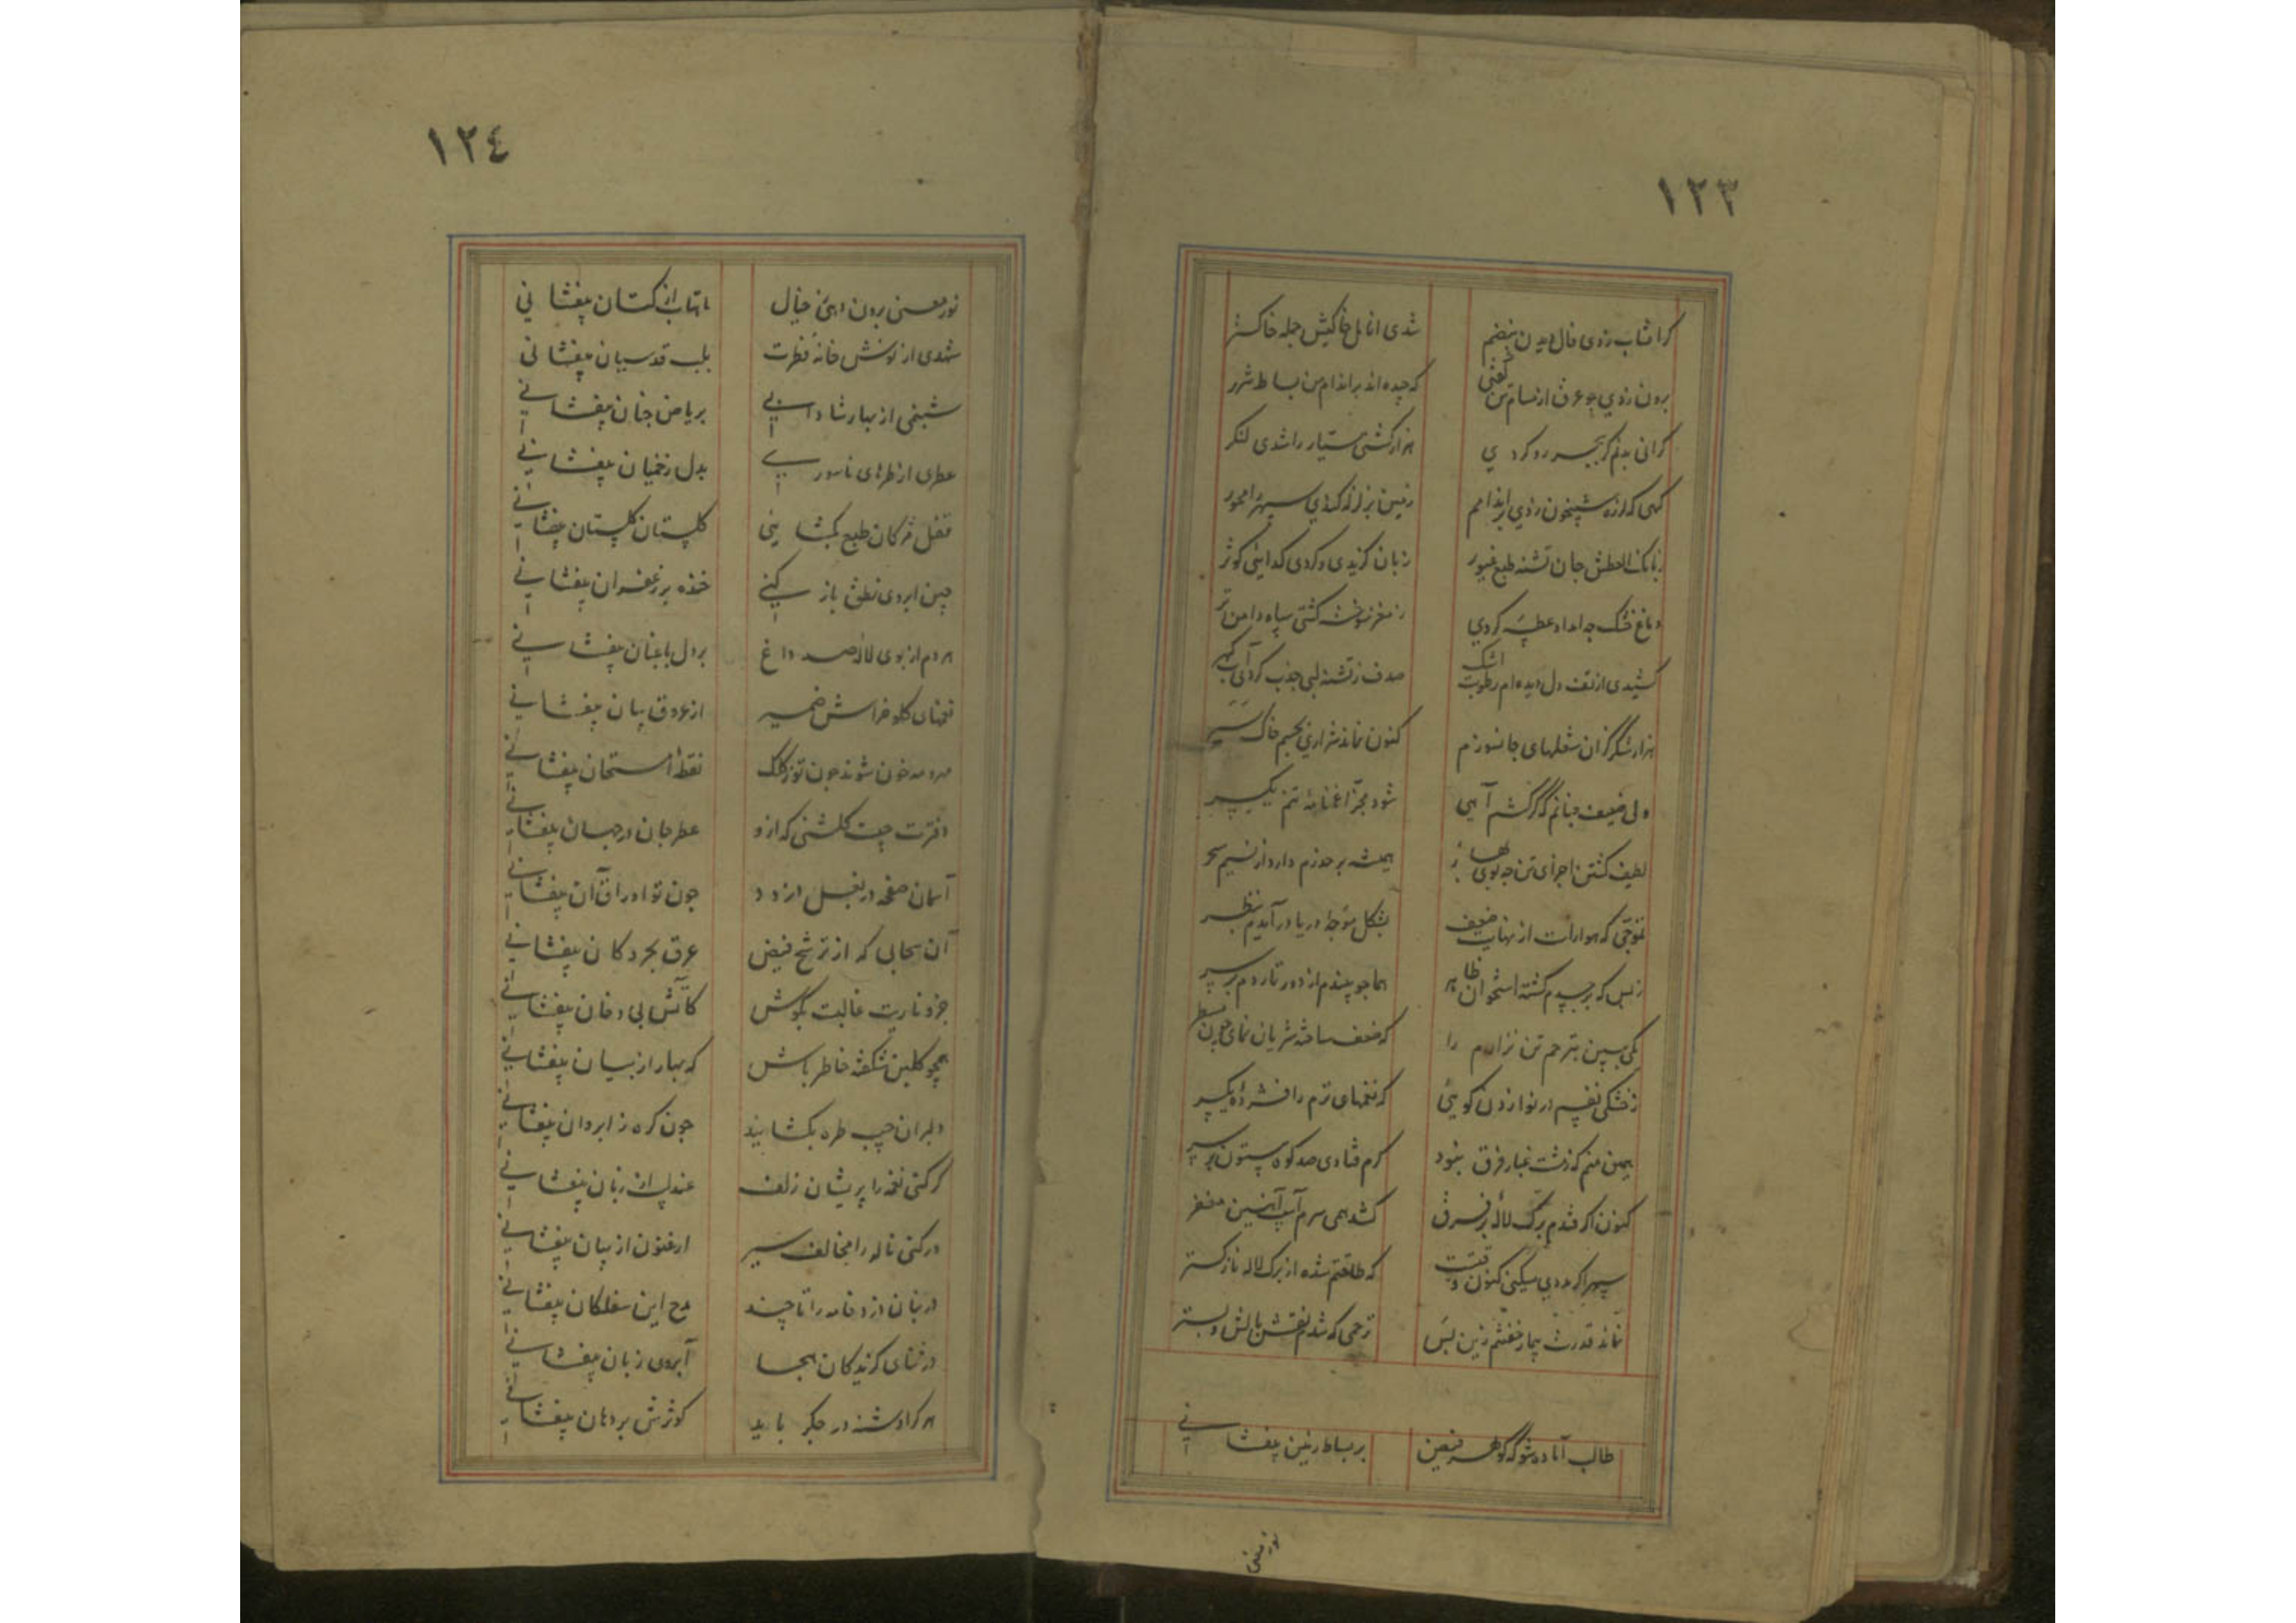 ١٢٣
کرا شاب زدی فال دیدن بنضم شدی انامل خاکیش جمله خاکستر
برون زدی چو عرق از مسام تن گفتی که چیده اند براندام من بساط شرر
کرانی بدنم کر ببحر رو کردی هزار کشتی سیار را شدی لنکر
کهی که لرزه شبیخون زدی براندامم زمین بزلزله
زبانک العطش جان تشنه طبع غیور زبان کزیدی و کردی کدایی کوثر
دماغ خشک چه امداد عطسه کردی ز مغز سوخته کشتی سیاه دامن تر
کشیدی از تف دل دیده ام رطوبت اشک صدف ز تشنه لبی جذب کرد آب کهر
هزار شکر کزان شعلهای جانسوزم کنون نماند شراری بجسم خاکستر
ولی ضعیف چنانم که گر کشم آهی شود مجزا اعضای تنم یکسر
لطیف کشتن اجزای تن چه بوی بها همیشه برحذرم دارد از نسیم سحر
تموجی که هوا راست از نهایت ضعف بشکل موجه دریا در آیدم بنظر
ز بس که بر جسدم کشته استخوان ظاهر هما چو بیندم از دور تا ردم بر سر
یکی ببین بترحم تن نزارم را که ضعف ساخته شریان نمای چون مسطر
ز خشکی نفسم در نوا زدن کویی که نغمهای ترم را فشرده یکسر
همین منم که زمشت غبار فرق نبود کرم فتادی صد کوه بیستون بر سر
کنون اکر فتدم برک لاله بر فرق کشد همی سرم آسیب آهنین مغفر
سپهر اکر مددی میکنی کنون وقتست که طاقتم شده از برک لاله نازکتر
نماند قدرت بیمار خفتنم زین بس ترحمی که شدم نقش بالش و بستر
طالب آماده شو که کوهر فیض بر بساط زمین بیفشانی
نور معنی
١٢٤
نور معنی برون دهی ز خیال ماهتاب از کتان بیفشانی
شهدی از نوش خانه فطرت بلب قدسیان بیفشانی
شبنمی از بهار شادابی بریاض جنان بیفشانی
عطری از طرهای ناسوری بدل زخمیان بیفشانی
قفل مژکان طبع بکشایی کلستان کلستان بیفشانی
چین ابروی نطق باز کنی خنده بر زعفران بیفشانی
هر دم از بوی لاله صد داغ بر دل باغبان بیفشانی
نغمهای کلو خراش ضمیر از عروق بیان بیفشانی
مرده خون شوند چون تو ز کلک نقطه امتحان بیفشانی
دفترت چیست کلشنی که ازو عطر جان در جهان بیفشانی
آسمان صفحه در بغل دزدد چون تو اوراق آن بیفشانی
آن سحابی که از ترشح فیض عرق بحر و کان بیفشانی
کآتش بی دخان بیفشانی
همچو کلبن شکفته خاطر باش که بهار از بیان بیفشانی
دلبران جیب طره بکشایند چون کره ز ابروان بیفشانی
کر کنی نغمه را پریشان زلف عندلیب از زبان بیفشانی
در کنی ناله را مخالف سیر ارغنون از بیان بیفشانی
در بنان از دخامه را تا چند مدح این سفلکان بیفشانی
در ثنای کزیدکان هجا آبروی زبان بیفشانی
هر کرا دشنه در جکر باید کوثرش بر دهان بیفشانی